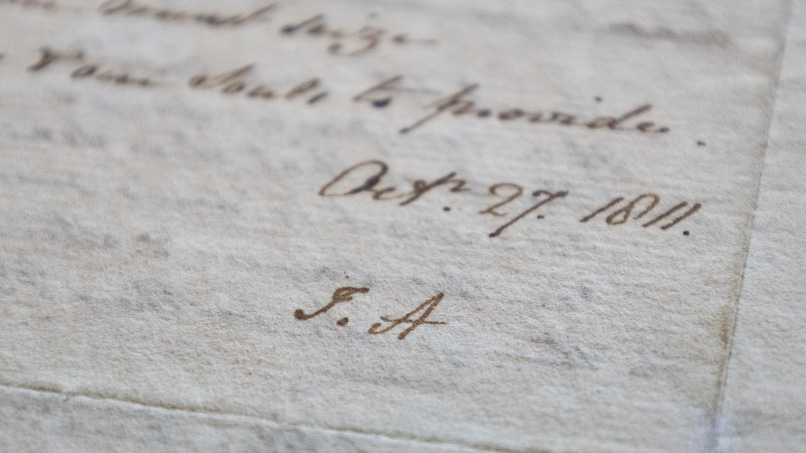 seize
our Souls to provide.
Octr. 27. 1811.
J. A